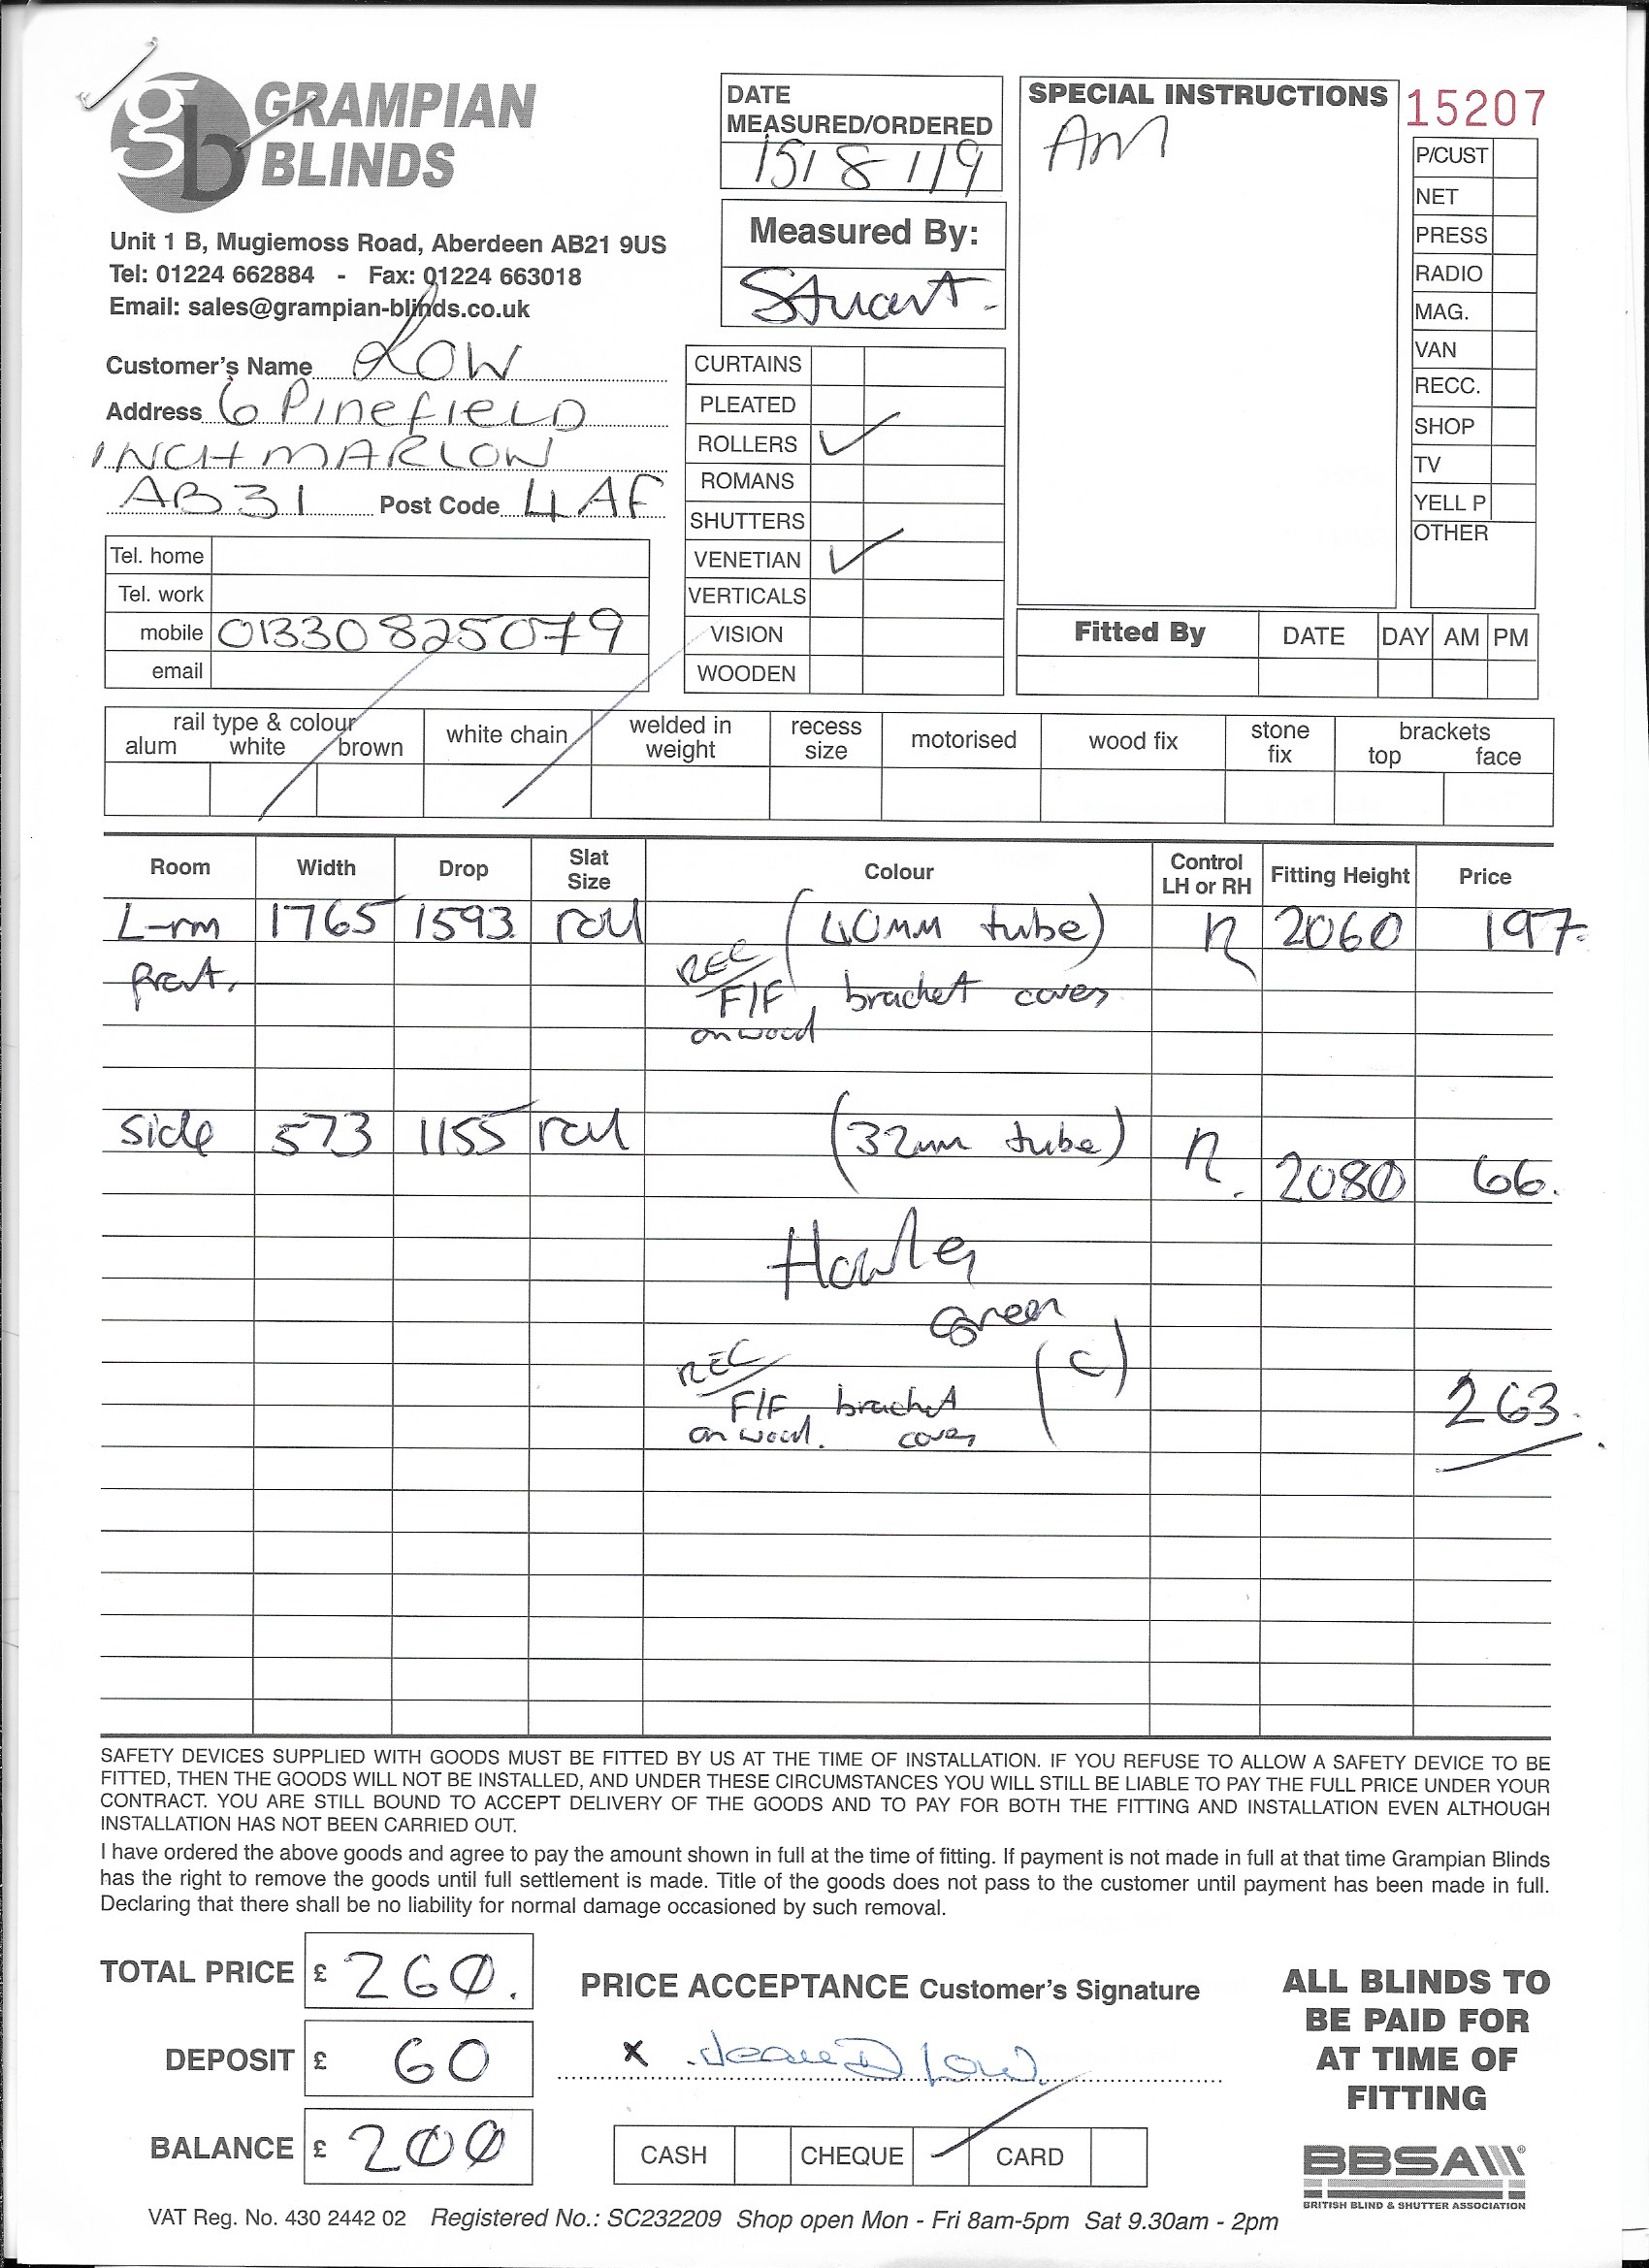 gb GRAMPIAN
BLINDS
Unit 1 B, Mugiemoss Road, Aberdeen AB21 9US
Tel: 01224 662884 - Fax: 01224 663018
Email: sales@grampian-blinds.co.uk
Customer's Name LOW
Address 6 PINEFIELD
INCHMARLOW
AB31 Post Code 4AF
Tel. home
Tel. work
mobile 01330825079
email
DATE
MEASURED/ORDERED
15/8/19
Measured By:
Stuart.
CURTAINS
PLEATED
ROLLERS ✓
ROMANS
SHUTTERS
VENETIAN ✓
VERTICALS
VISION
WOODEN
SPECIAL INSTRUCTIONS
AM
15207
P/CUST
NET
PRESS
RADIO
MAG.
VAN
RECC.
SHOP
TV
YELL P
OTHER
Fitted By DATE DAY AM PM
rail type & colour white chain welded in weight recess size motorised wood fix stone fix brackets
alum white brown top face
Room Width Drop Slat Size Colour Control LH or RH Fitting Height Price
L-rm 1765 1593 roll (40mm tube) R 2060 197.
front. REC
F/F bracket covers
on wood
side 573 1155 roll (32mm tube) R. 2080 66.
Green
REC (C)
F/F bracket 263.
on wood. covers
SAFETY DEVICES SUPPLIED WITH GOODS MUST BE FITTED BY US AT THE TIME OF INSTALLATION. IF YOU REFUSE TO ALLOW A SAFETY DEVICE TO BE
FITTED, THEN THE GOODS WILL NOT BE INSTALLED, AND UNDER THESE CIRCUMSTANCES YOU WILL STILL BE LIABLE TO PAY THE FULL PRICE UNDER YOUR
CONTRACT. YOU ARE STILL BOUND TO ACCEPT DELIVERY OF THE GOODS AND TO PAY FOR BOTH THE FITTING AND INSTALLATION EVEN ALTHOUGH
INSTALLATION HAS NOT BEEN CARRIED OUT.
I have ordered the above goods and agree to pay the amount shown in full at the time of fitting. If payment is not made in full at that time Grampian Blinds
has the right to remove the goods until full settlement is made. Title of the goods does not pass to the customer until payment has been made in full.
Declaring that there shall be no liability for normal damage occasioned by such removal.
TOTAL PRICE £ 260.
DEPOSIT £ 60
BALANCE £ 200
PRICE ACCEPTANCE Customer's Signature
x Low
CASH CHEQUE CARD
ALL BLINDS TO
BE PAID FOR
AT TIME OF
FITTING
BBSA
BRITISH BLIND & SHUTTER ASSOCIATION
VAT Reg. No. 430 2442 02 Registered No.: SC232209 Shop open Mon - Fri 8am-5pm Sat 9.30am - 2pm